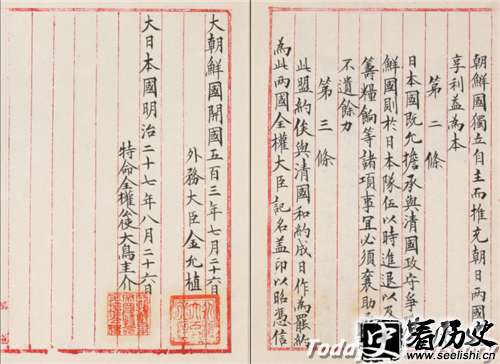 朝鮮國獨立自主而推充朝日兩國
享利益為本
第二條
日本國既允擔承與清國攻守爭
鮮國則於日本隊伍以時進退以及
籌糧餉等諸項事宜必須襄助
不遺餘力
第三條
此盟約俟與清國和約成日作為罷約
為此兩國全權大臣記名盖印以昭憑信
大朝鮮國開國五百三年七月二十六日
外務大臣金允植
大日本國明治二十七年八月二十六日
特命全權公使大鳥圭介
Toda
字 看历史
www.seelishi.cn